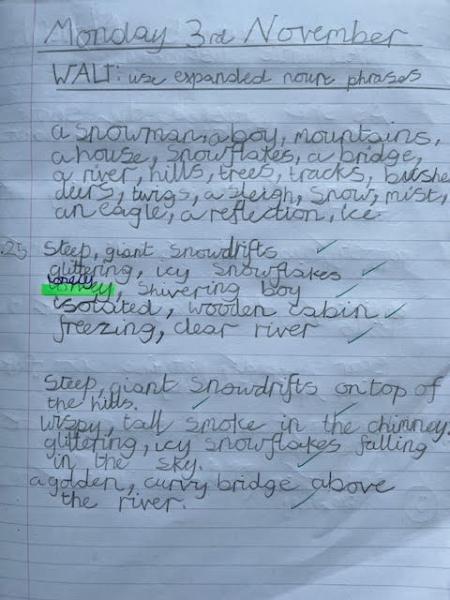 Monday 3rd November
WALT: use expanded noun phrases
a snowman, a boy, mountains,
a house, snowflakes, a bridge,
a river, hills, trees, tracks, bushe
deers, twigs, a sleigh, snow, mist,
an eagle, a reflection, ice
Steep, giant snowdrifts
glittering, icy snowflakes
, shivering boy
isolated, wooden cabin
freezing, clear river
Steep, giant snowdrifts on top of
the hills.
wispy, tall smoke in the chimney.
glittering, icy snowflakes falling
in the sky.
a golden, curvy bridge above
the river.